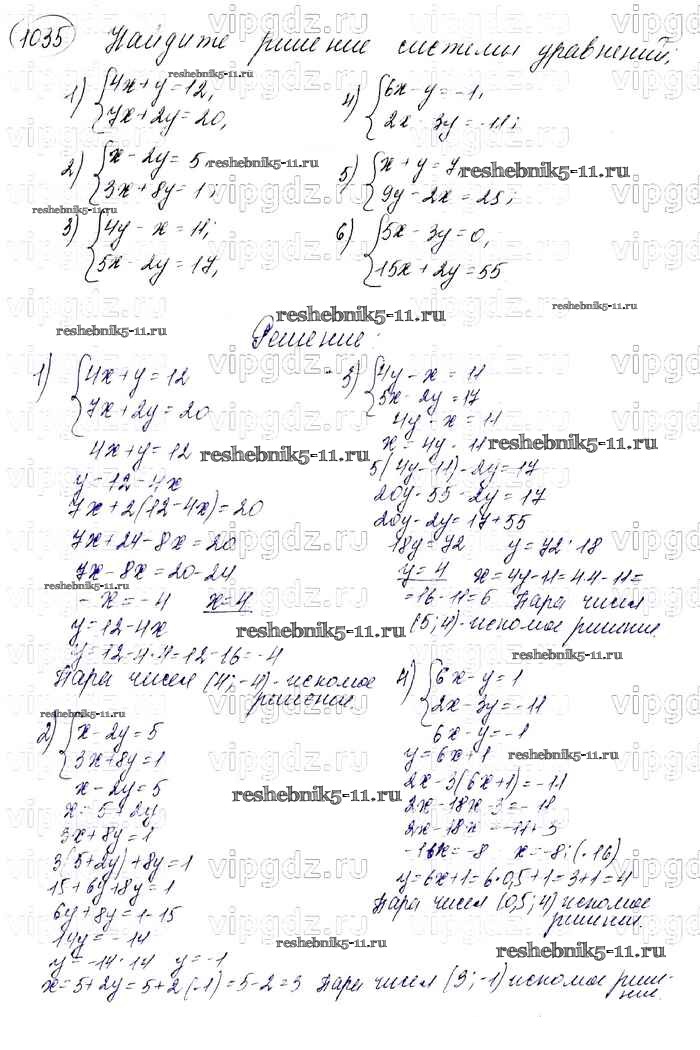 1035 Найдите решение системы уравнений:
1) {4x+y=12,
7x+2y=20,
2) {x-2y=5
3x+8y=1;
3) {4y-x=11;
5x-2y=17,
4) {6x-y=-1,
2x-3y=-11;
5) {x+y=7,
9y-2x=25;
6) {5x-3y=0,
15x+2y=55
Решение:
1) {4x+y=12
7x+2y=20
4x+y=12
y=12-4x
7x+2(12-4x)=20
7x+24-8x=20
7x-8x=20-24
-x=-4 x=4
y=12-4x
y=12-4·4=12-16=-4
Пара чисел (4;-4)-искомое
решение.
2) {x-2y=5
3x+8y=1
x-2y=5
x=5+2y
3x+8y=1
3(5+2y)+8y=1
15+6y+8y=1
6y+8y=1-15
14y=-14
y=-14:14 y=-1
x=5+2y=5+2(-1)=5-2=3 Пара чисел (3;-1) искомое реше-
ние.
3) {4y-x=11
5x-2y=17
4y-x=11
x=4y-11
5(4y-11)-2y=17
20y-55-2y=17
20y-2y=17+55
18y=72 y=72:18
y=4 x=4y-11=4·4-11=
=16-11=6 Пара чисел
(5;4)-искомое решение.
4) {6x-y=1
2x-3y=-11
6x-y=-1
y=6x+1
2x-3(6x+1)=-11
2x-18x-3=-11
2x-18x=-11+3
-16x=-8 x=-8:(-16)
y=6x+1=6·0,5+1=3+1=4
Пара чисел (0,5;4) искомое
решение.
vipgdz.ru
reshebnik5-11.ru